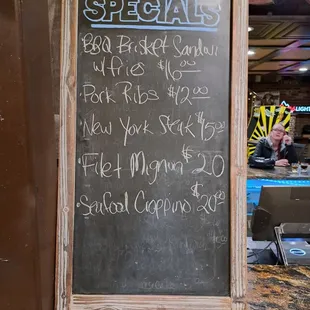 SPECIALS
BBQ Brisket Sandwi
w/fries $16.00
Pork Ribs $12.00
New York Steak $15.00
Filet Mignon $20
Seafood Cioppino $20.00
LIGHT